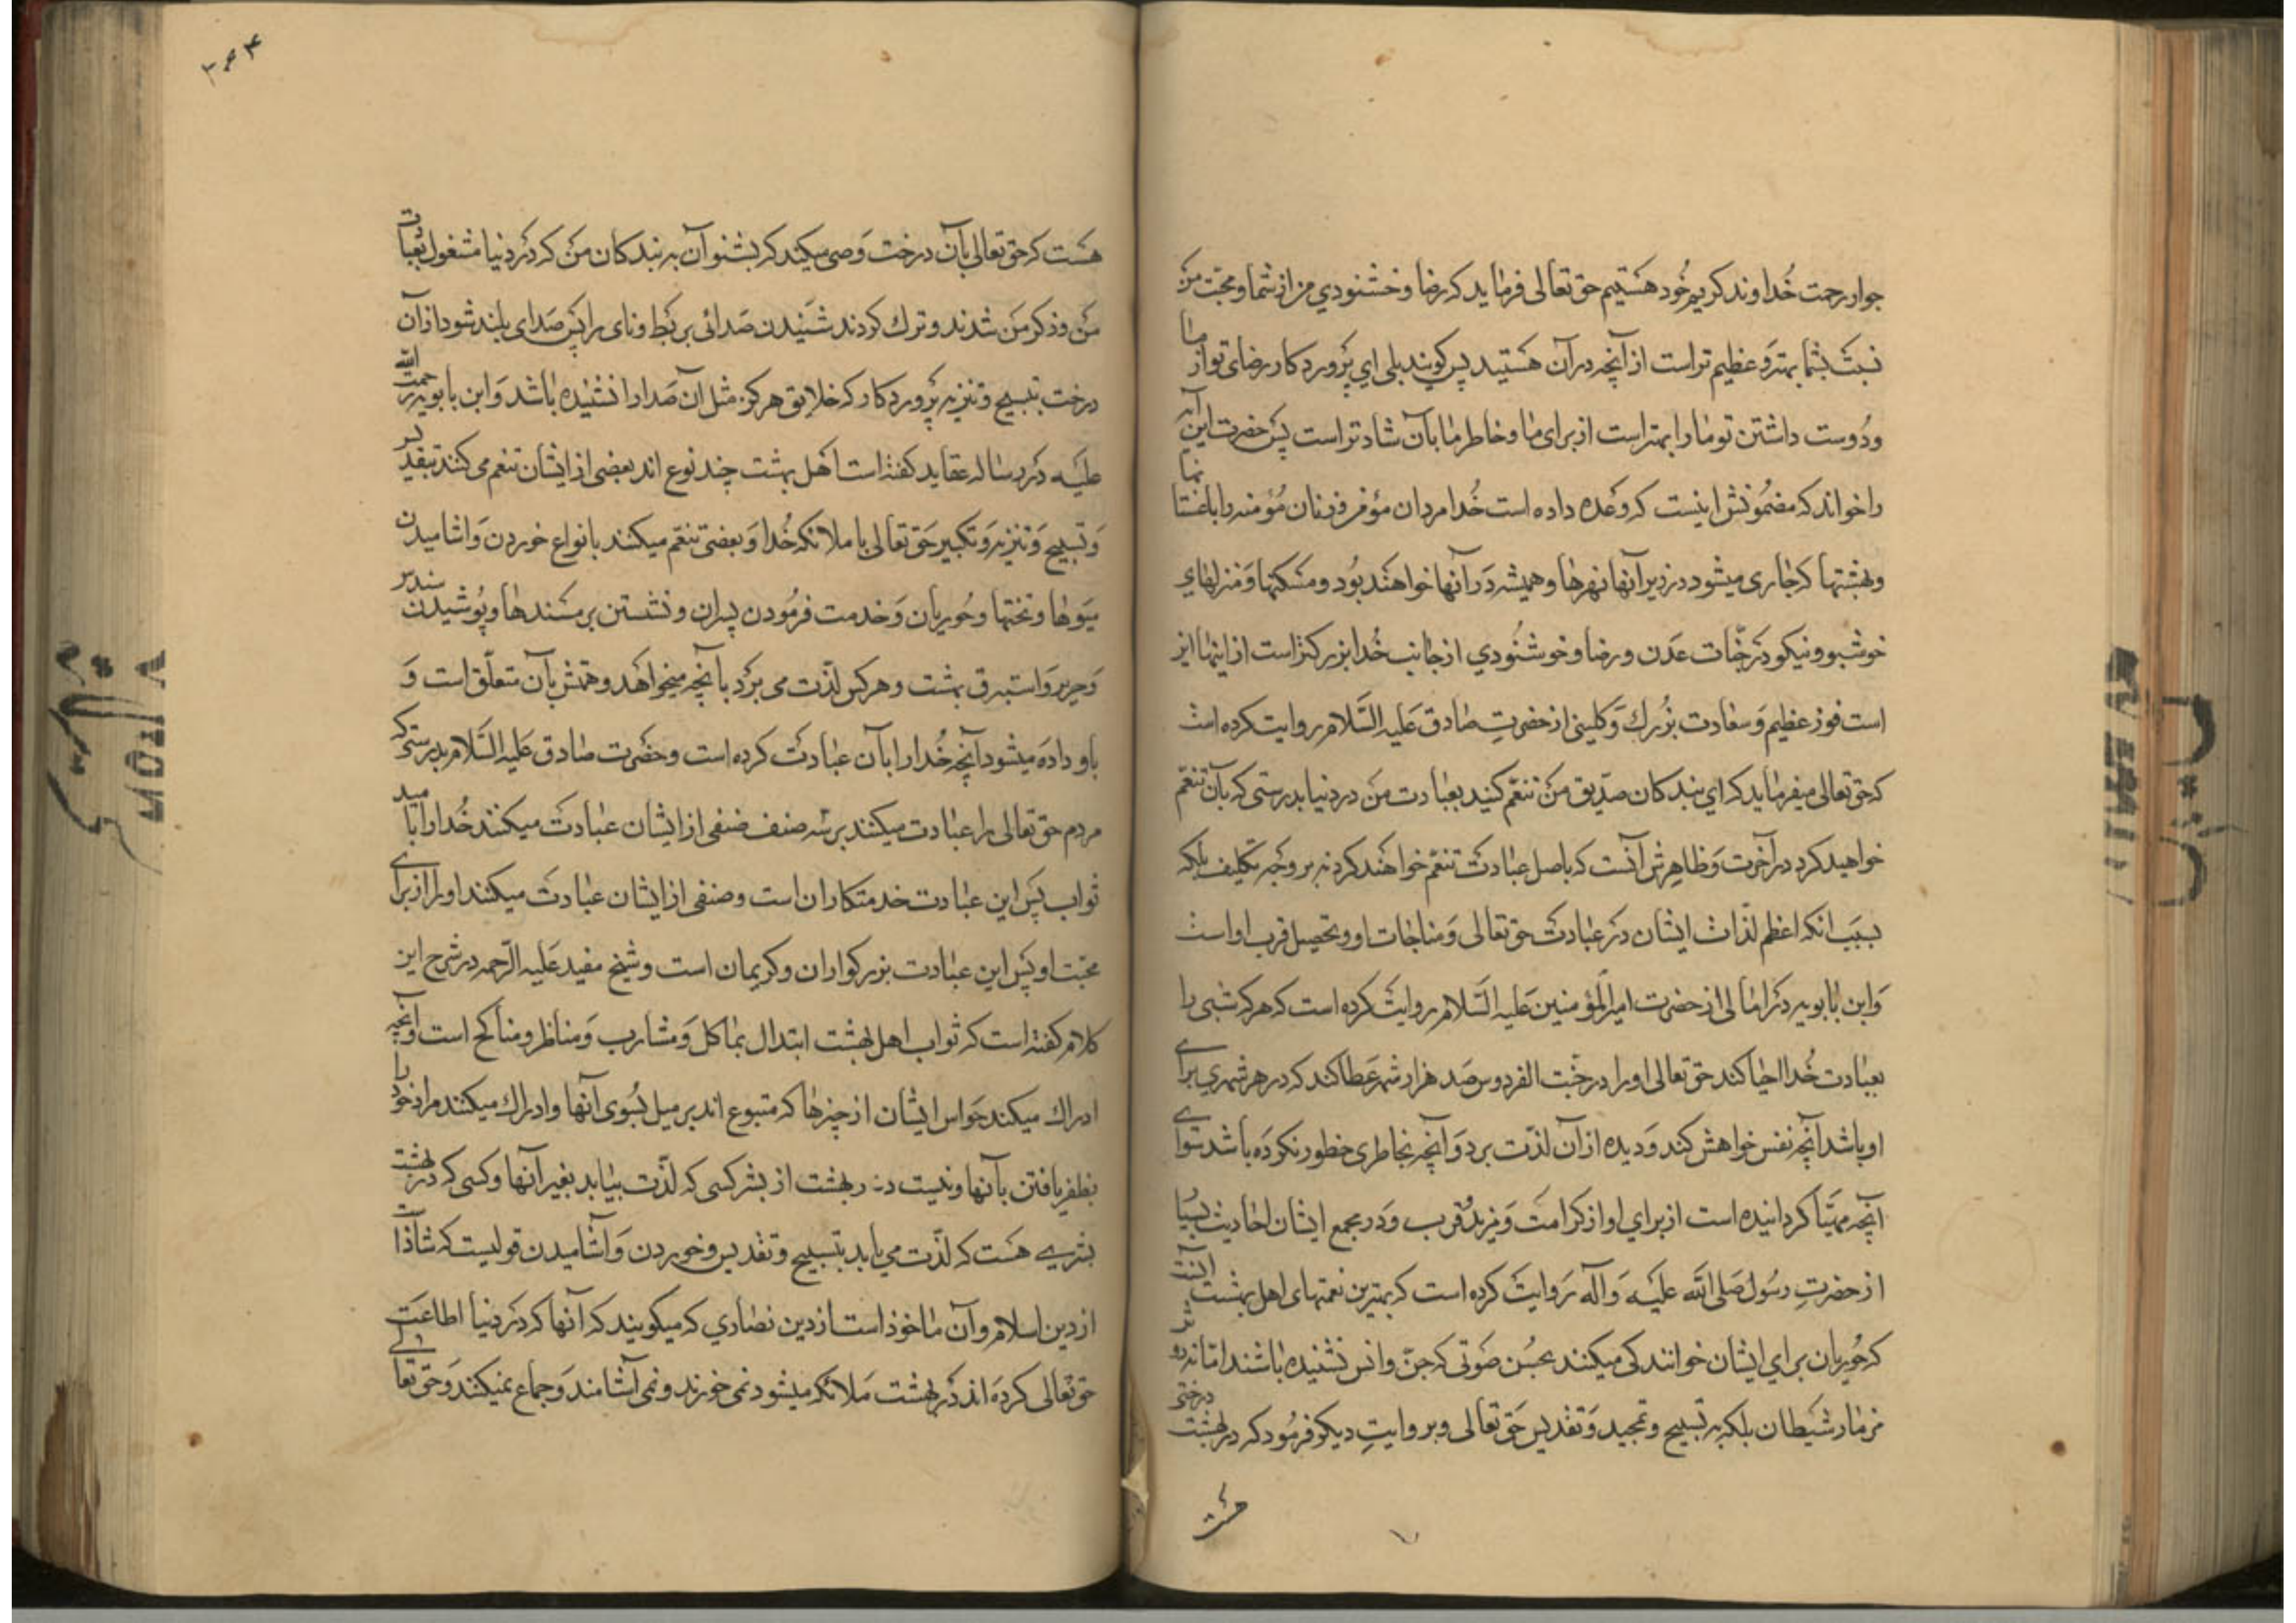 جوار رحمت خُداوند کریم خُود هستیم حق تعالی فرماید که رضا و خشنودي من از شما و محبّت من
نسبت بشما بهتر و عظیم تر است از آنچه در آن هستید پس کویند بلی اي پروردکار رضای تو از ما
و دُوست داشتن تو ما را بهتر است از برای ما و خاطر ما بآن شادتر است پس حضرت این آیه
را خواند که مضمُونش اینست که وعده داده است خُدا مردان مؤمن و زنان مُؤمنه را باغستانها
و بهشتها که جاری میشود در زیر آنها نهرها و همیشه در آنها خواهند بُود و مسکنها و منزلهاي
خوشبو و نیکو در جنّات عدن و رضا و خوشنُودي از جانب خُدا بزرکتر است از اینها این
است فوز عظیم و سعادت بزُرك و کلینی از حضرتِ صادق علیه السّلام روایت کرده است
که حق تعالی میفرماید که اي بندکان صدّیق من تنعّم کنید بعبادت من در دنیا بدرستی که بآن تنعّم
خواهید کرد در آخرت و ظاهرش آنست که باصل عبادت تنعّم خواهند کرد نه بر وجه تکلیف بلکه
بسبب انکه اعظم لذّات ایشان در عبادت حق تعالی و مناجات او و تحصیل قرب او است
و ابن بابویه در امالی از حضرت امیر المؤمنین علیه السّلام روایت کرده است که هر که شبی را
بعبادت خُدا احیا کند حق تعالی او را در جنّت الفردوس صد هزار شهر عطا کند که در هر شهري براے
او باشد آنچه نفس خواهش کند و دیده از آن لذّت برد و آنچه بخاطری خطور نکرده باشد سواے
آنچه مهیّا کردانیده است از براي او از کرامت و مزید و قرب و در مجمع ایشان احادیث بسیا
از حضرتِ رسُول صلی الله علیه و آله روایت کرده است که بهترین نعمتهای اهل بهشت آنست
که حُوریان براي ایشان خوانندکی میکنند بحُسن صَوتی که جنّ و انس نشنیده باشند امّا نه در
مزمار شیطان بلکه به تسبیح و تمجید و تقدیس حق تعالی و بروایتِ دیکر فرمُود که در بهشت درختی
هست
۳۰۴
هست که حق تعالی بآن درخت وحی میکند که بشنوان به بندکان من که در دنیا مشغول بعبادت
من و ذکر من شدند و ترك کردند شنیدن صدائی بربط و نای را پس صدای بلند شود از آن
درخت بتسبیح و تنزیه پروردکار که خلایق هرکز مثل آن صدا را نشنیده باشد و ابن بابویه رحمت الله
علیه در رساله عقاید کفته است اهل بهشت چند نوع اند بعضی از ایشان تنعم می کنند بتقدیر
و تسبیح و تنزیه و تکبیر حق تعالی با ملائکه خُدا و بعضی تنعّم میکنند بانواع خوردن و اشامیدن
میوها و تختها و حُوریان و خدمت فرمُودن پسران و نشستن بر مسندها و پُوشیدن سندس
و حریر و استبرق بهشت و هر کس لذّت می برد بآنچه میخواهد و همّتش بآن متعلّق است و
باو داده میشود آنچه خُدا را بآن عبادت کرده است و حضرت صادق علیه السّلام بدرستی که
مردم حق تعالی را عبادت میکنند بر سه صنف صنفی از ایشان عبادت میکنند خُدا را باميد
ثواب پس این عبادت خدمتکاران است و صنفی از ایشان عبادت میکنند او را از براے
محبّت او پس این عبادت بزرکواران و کریمان است و شیخ مفید علیه الرّحمه در شرح این
کلام کفته است که ثواب اهل بهشت ابتدال بماکل و مشارب و مناظر و مناکح است و آنچه
ادراك میکند حواس ایشان از چیزها که متبوع اند بر میل بُسوی آنها و ادراك میکنند مراد خود را
بظفر یافتن بآنها و نیست در بهشت از بشر کسی که لذّت بیابد بغیر آنها و کسی که در بهشت
بشرے هست که لذّت می یابد بتسبیح و تقدیس و خوردن و آشامیدن قولیست که شاذّ است
از دین اسلام و آن ماخوذ است از دین نصاري که میکویند که آنها که در دنیا اطاعت
حق تعالی کرده اند در بهشت ملائکه میشود نمی خورند و نمی آشامند و جماع نمیکنند و حق تعالے